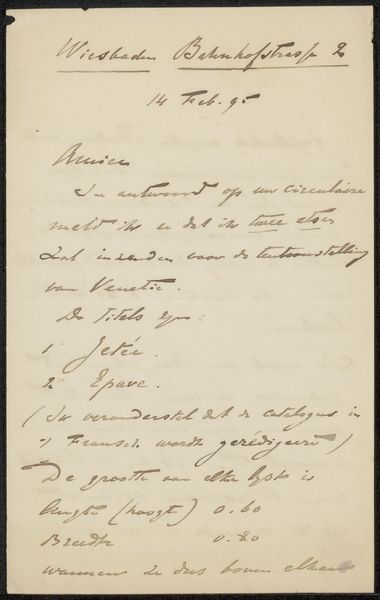 Wiesbaden Bahnhofstrasse 2
14 Feb. 95
Amice
In antwoord op uw circulaire
meld ik u dat ik twee etsen
zal inzenden voor de tentoonstelling
van Venetie.
De titels zyn:
1 Jetée.
2 Epave.
(Ik veronderstel dat de catalogus in
't Fransch wordt gerédigeerd)
De grootte van elke lyst is
lengte (hoogte) 0.60
Breedte 0.80
wanneer ze dus boven elkaar